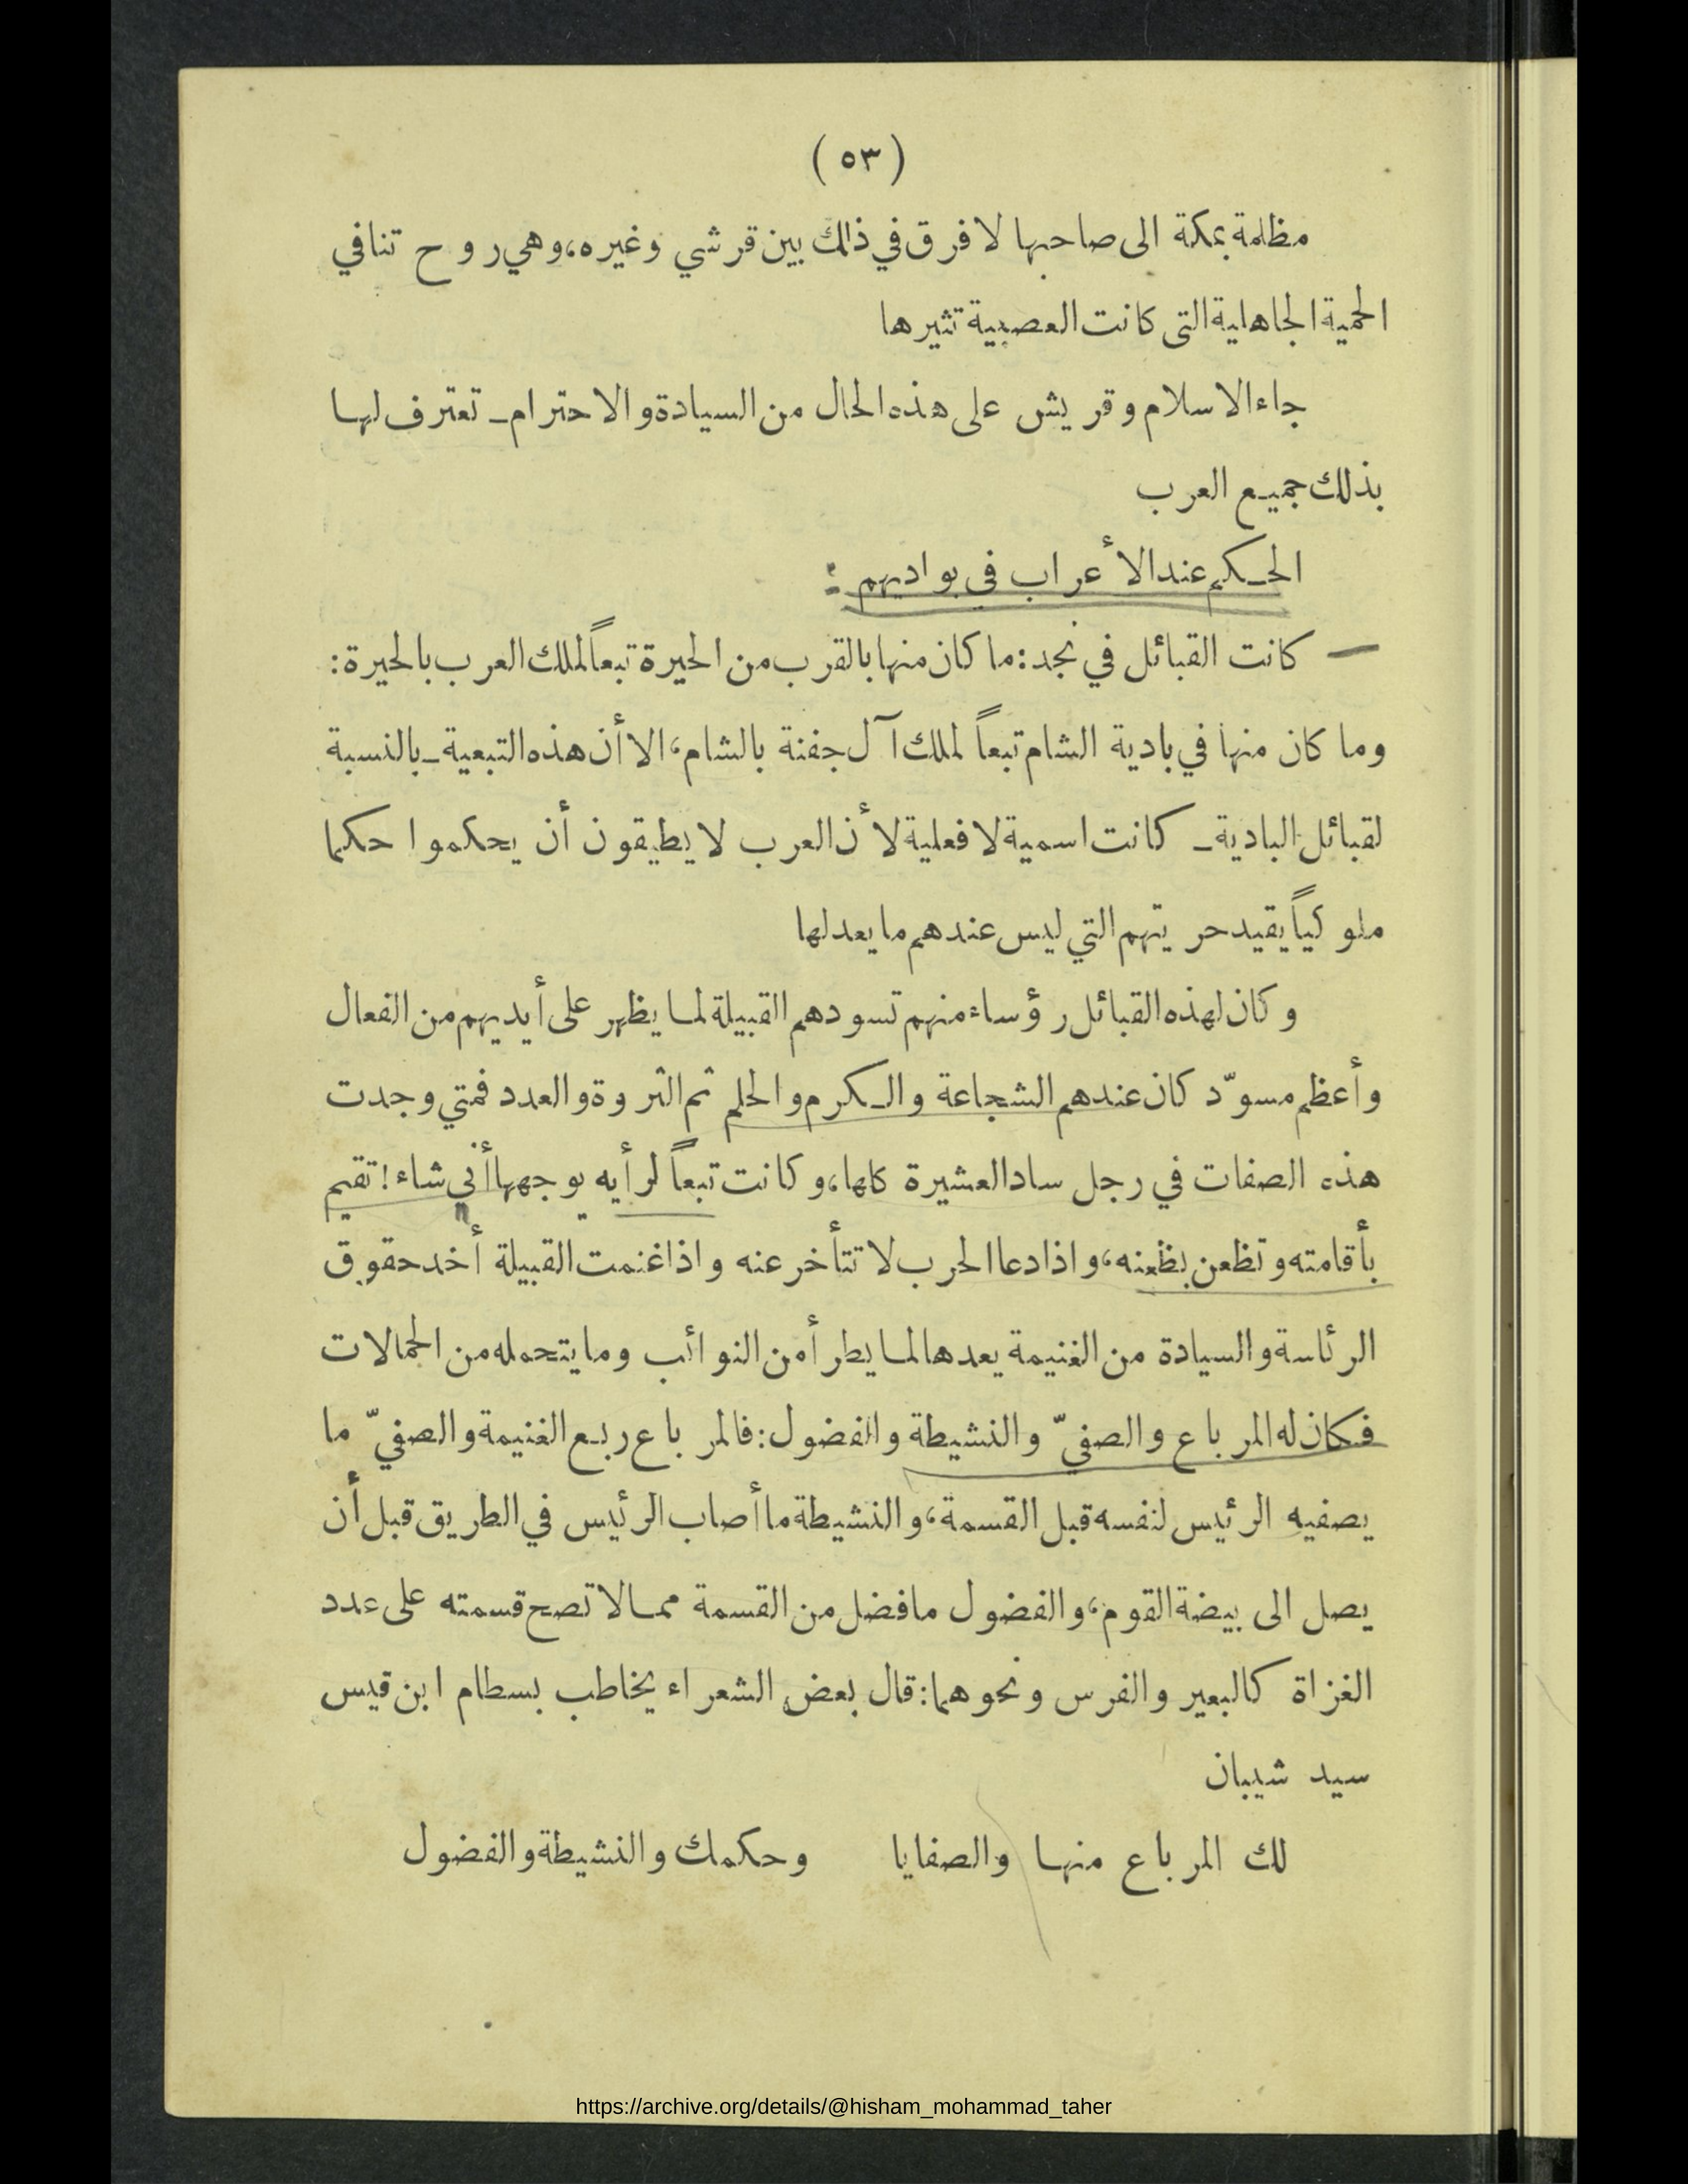 ( ٥٣ )
مظلمة بمكة الى صاحبها لا فرق في ذلك بين قرشي وغيره، وهي روح تنافي
الحمية الجاهلية التى كانت العصبية تثيرها
جاء الاسلام وقريش على هذه الحال من السيادة والاحترام ـ تعترف لها
بذلك جميع العرب
الحكم عند الأعراب في بواديهم :
— كانت القبائل في نجد: ما كان منها بالقرب من الحيرة تبعاً لملك العرب بالحيرة:
وما كان منها في بادية الشام تبعاً لملك آل جفنة بالشام، الا أن هذه التبعية ـ بالنسبة
لقبائل البادية ـ كانت اسمية لا فعلية لأن العرب لا يطيقون أن يحكموا حكما
ملوكياً يقيد حريتهم التي ليس عندهم ما يعدلها
وكان لهذه القبائل رؤساء منهم تسودهم القبيلة لما يظهر على أيديهم من الفعال
وأعظم مسوّد كان عندهم الشجاعة والكرم والحلم ثم الثروة والعدد فمتي وجدت
هذه الصفات في رجل ساد العشيرة كلها، وكانت تبعاً لرأيه يوجهها أنى شاء! تقيم
بأقامته وتظعن بظعنه، واذا دعا الحرب لا تتأخر عنه واذا غنمت القبيلة أخد حقوق
الرئاسة والسيادة من الغنيمة يعدها لما يطرأ من النوائب وما يتحمله من الحمالات
فكان له المرباع والصفيّ والنشيطة والفضول: فالمرباع ربع الغنيمة والصفيّ ما
يصفيه الرئيس لنفسه قبل القسمة، والنشيطة ما أصاب الرئيس في الطريق قبل أن
يصل الى بيضة القوم، والفضول ما فضل من القسمة مما لا تصح قسمته على عدد
الغزاة كالبعير والفرس ونحوهما: قال بعض الشعراء يخاطب بسطام ابن قيس
سيد شيبان
لك المرباع منها والصفايا وحكمك والنشيطة والفضول
https://archive.org/details/@hisham_mohammad_taher